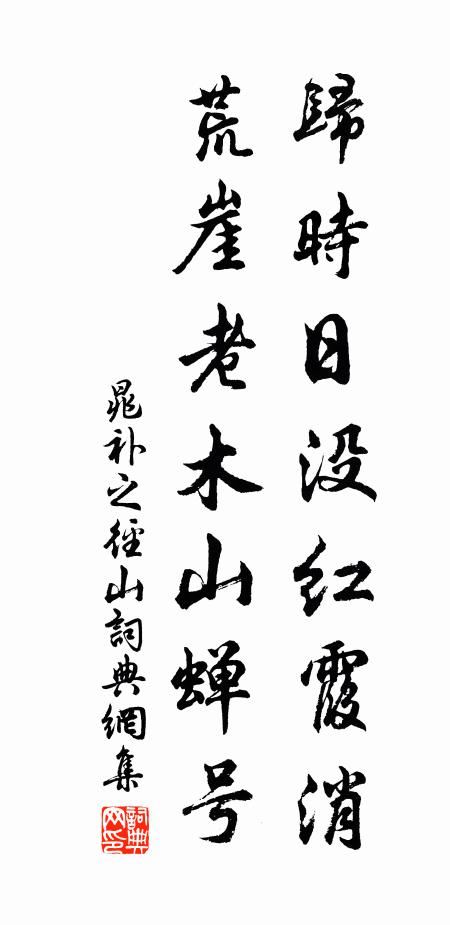 歸時日没红霞消
荒崖老木山蝉号
晁补之徑山詞典網集
詞典网印